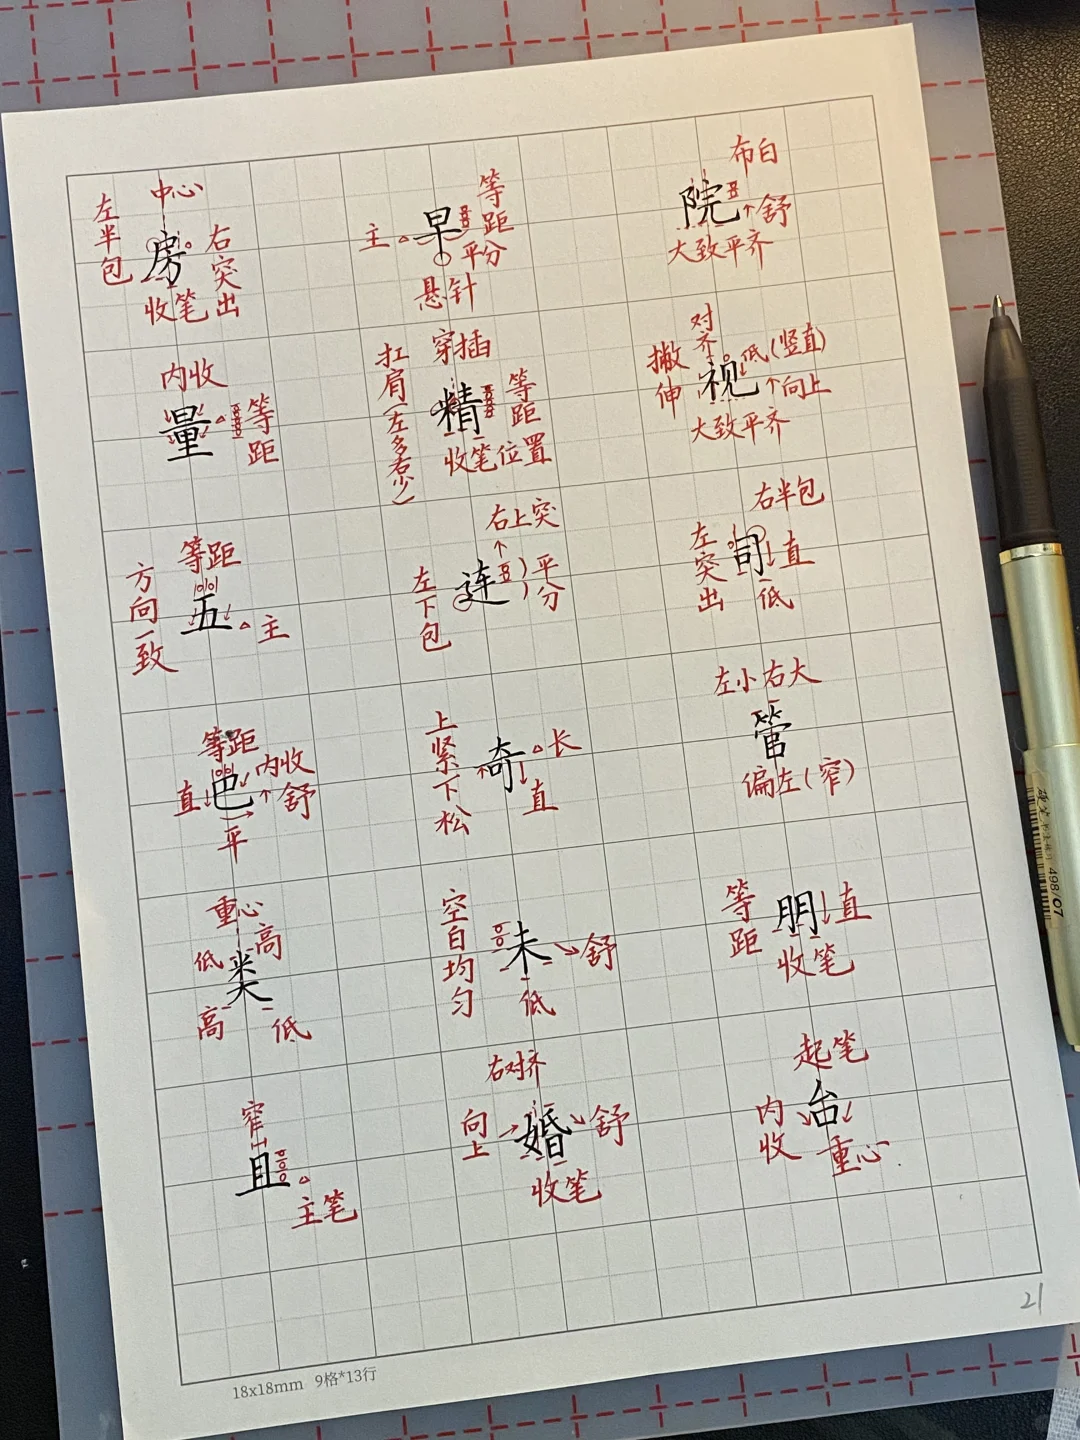 中心
左半包
房
右突出
收笔
等距
平分
主
早
悬针
布白
院
舒
大致平齐
内收
量
等距
穿插
扛肩(左多右少)
精
等距
收笔位置
对齐
撇伸
视
低(竖直)
向上
大致平齐
等距
方向一致
五
主
右上突
左下包
连
平分
右半包
左突出
司
直
低
等距
直
巴
内收
舒
平
上紧下松
奇
长
直
左小右大
管
偏左(窄)
重心
低
高
类
高
低
空白均匀
未
舒
低
等距
朋
直
收笔
窄
且
主笔
右对齐
向上
婚
舒
收笔
起笔
内收
台
重心
21
18x18mm 9格*13行
498/07